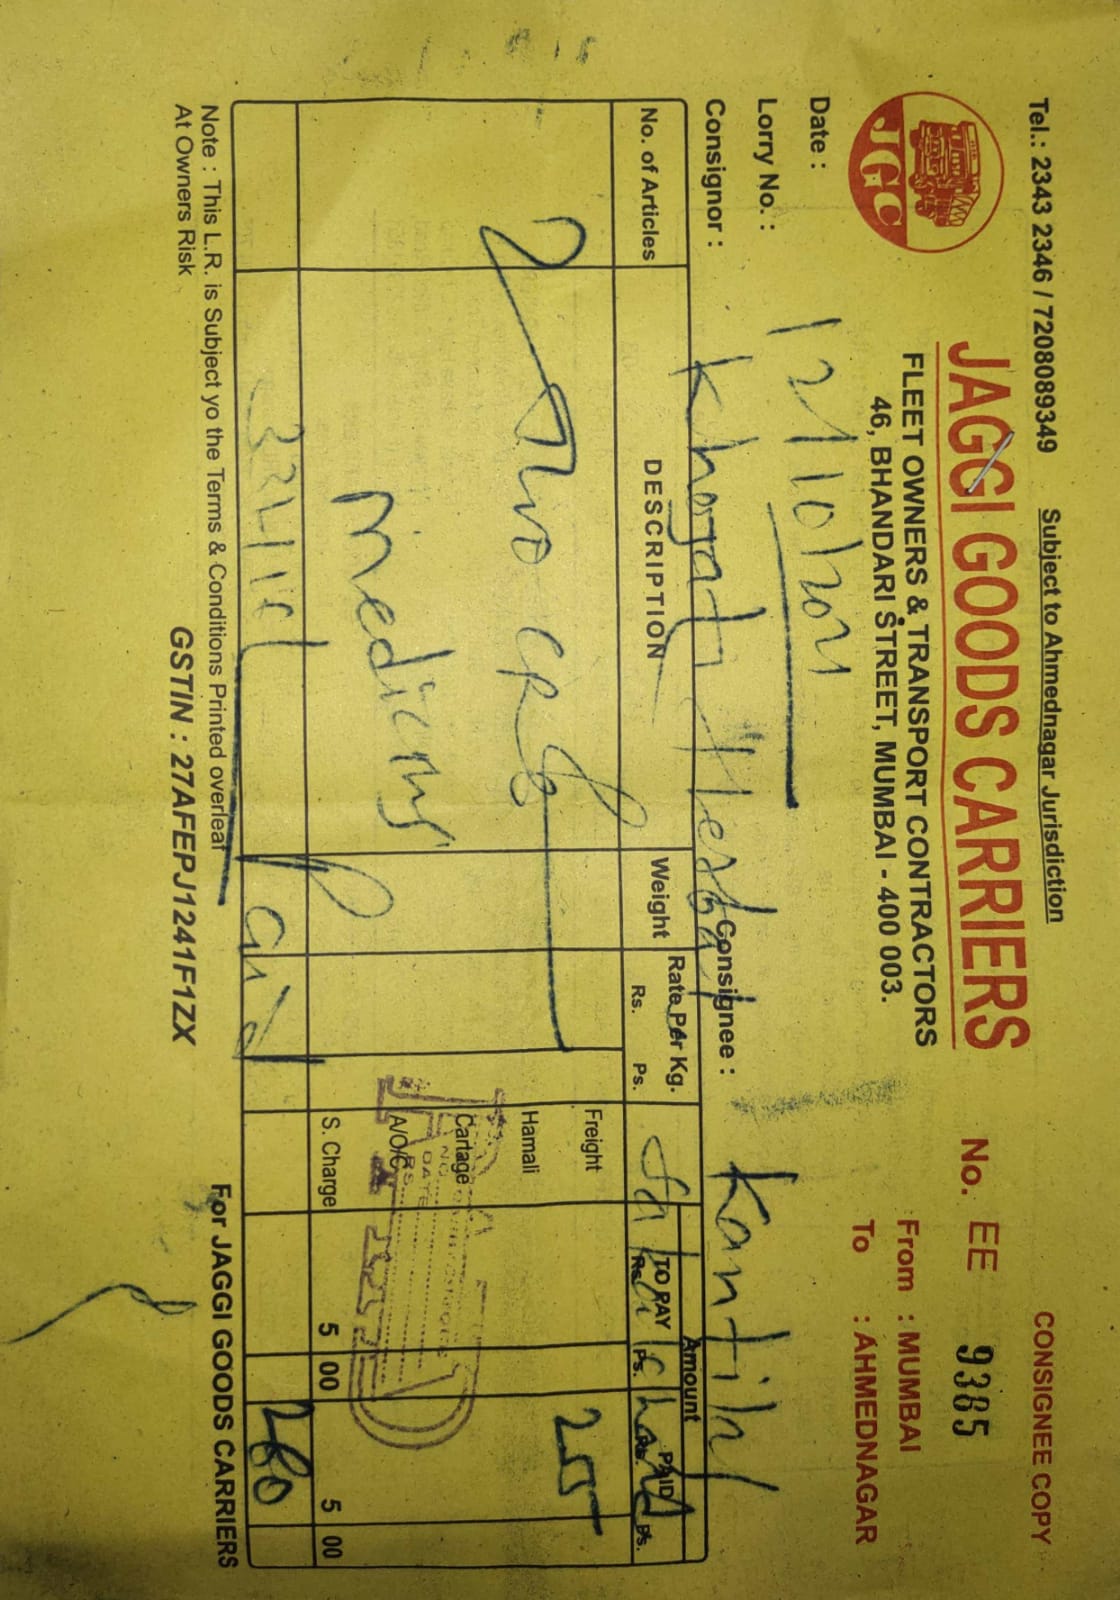 Tel.: 2343 2346 / 7208089349 Subject to Ahmednagar Jurisdiction CONSIGNEE COPY
JGC
JAGGI GOODS CARRIERS
FLEET OWNERS & TRANSPORT CONTRACTORS
46, BHANDARI STREET, MUMBAI - 400 003.
No. EE 9385
From : MUMBAI
To : AHMEDNAGAR
Date :
Lorry No. :
Consignor : Consignee : Kantilal
No. of Articles DESCRIPTION Weight Rate Per Kg. Amount
Rs. Ps. TO PAY PAID
Rs. Ps. Rs. Ps.
2 Two Freight
Hamali
Medicines Cartage
A/O/C
PAID
S. Charge 5 00 5 00
260
Note : This L.R. is Subject yo the Terms & Conditions Printed overleaf
At Owners Risk
GSTIN : 27AFEPJ1241F1ZX
For JAGGI GOODS CARRIERS